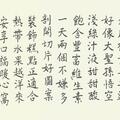 好像大聖孫悟空
淺綠汁液甜甜酸
飽含豐富維生素
一天兩個不嫌多
剖開切片好圖案
裝飾糕點正適合
熱帶水果越洋來
口福暖心窩